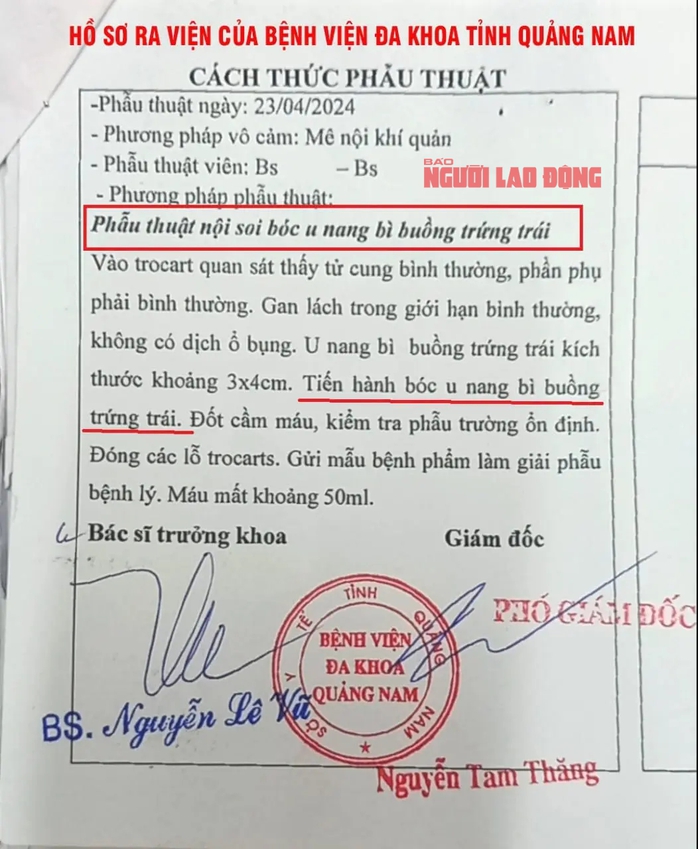 HỒ SƠ RA VIỆN CỦA BỆNH VIỆN ĐA KHOA TỈNH QUẢNG NAM
CÁCH THỨC PHẪU THUẬT
-Phẫu thuật ngày: 23/04/2024
- Phương pháp vô cảm: Mê nội khí quản
- Phẫu thuật viên: Bs – Bs
BÁO
NGƯỜI LAO ĐỘNG
- Phương pháp phẫu thuật:
Phẫu thuật nội soi bóc u nang bì buồng trứng trái
Vào trocart quan sát thấy tử cung bình thường, phần phụ
phải bình thường. Gan lách trong giới hạn bình thường,
không có dịch ổ bụng. U nang bì buồng trứng trái kích
thước khoảng 3x4cm. Tiến hành bóc u nang bì buồng
trứng trái. Đốt cầm máu, kiểm tra phẫu trường ổn định.
Đóng các lỗ trocarts. Gửi mẫu bệnh phẩm làm giải phẫu
bệnh lý. Máu mất khoảng 50ml.
Bác sĩ trưởng khoa Giám đốc
PHÓ GIÁM ĐỐC
SỞ Y TẾ TỈNH QUẢNG NAM
BỆNH VIỆN
ĐA KHOA
QUẢNG NAM
BS. Nguyễn Lê Vũ
Nguyễn Tam Thăng